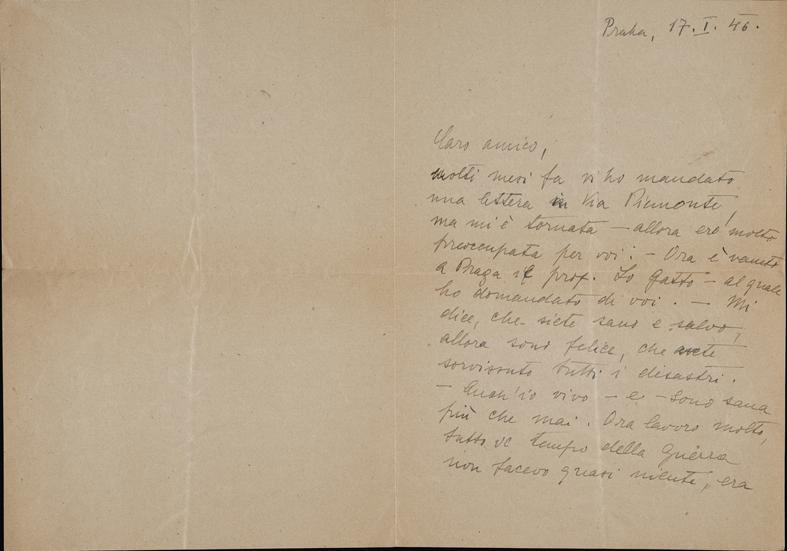 Praha, 17. I. 46.
Caro amico,
molti mesi fa vi ho mandato
una lettera in Via Piemonte,
ma mi è tornata – allora ero molto
preoccupata per voi! – Ora è venuto
a Praga il prof. Lo Gatto – al quale
ho domandato di voi. – Mi
dice, che siete sano e salvo,
allora sono felice, che avete
tutti i disastri.
– Anch'io vivo – e – sono sana
più che mai. Ora lavoro molto,
tutto tempo della guerra
non facevo quasi niente, era